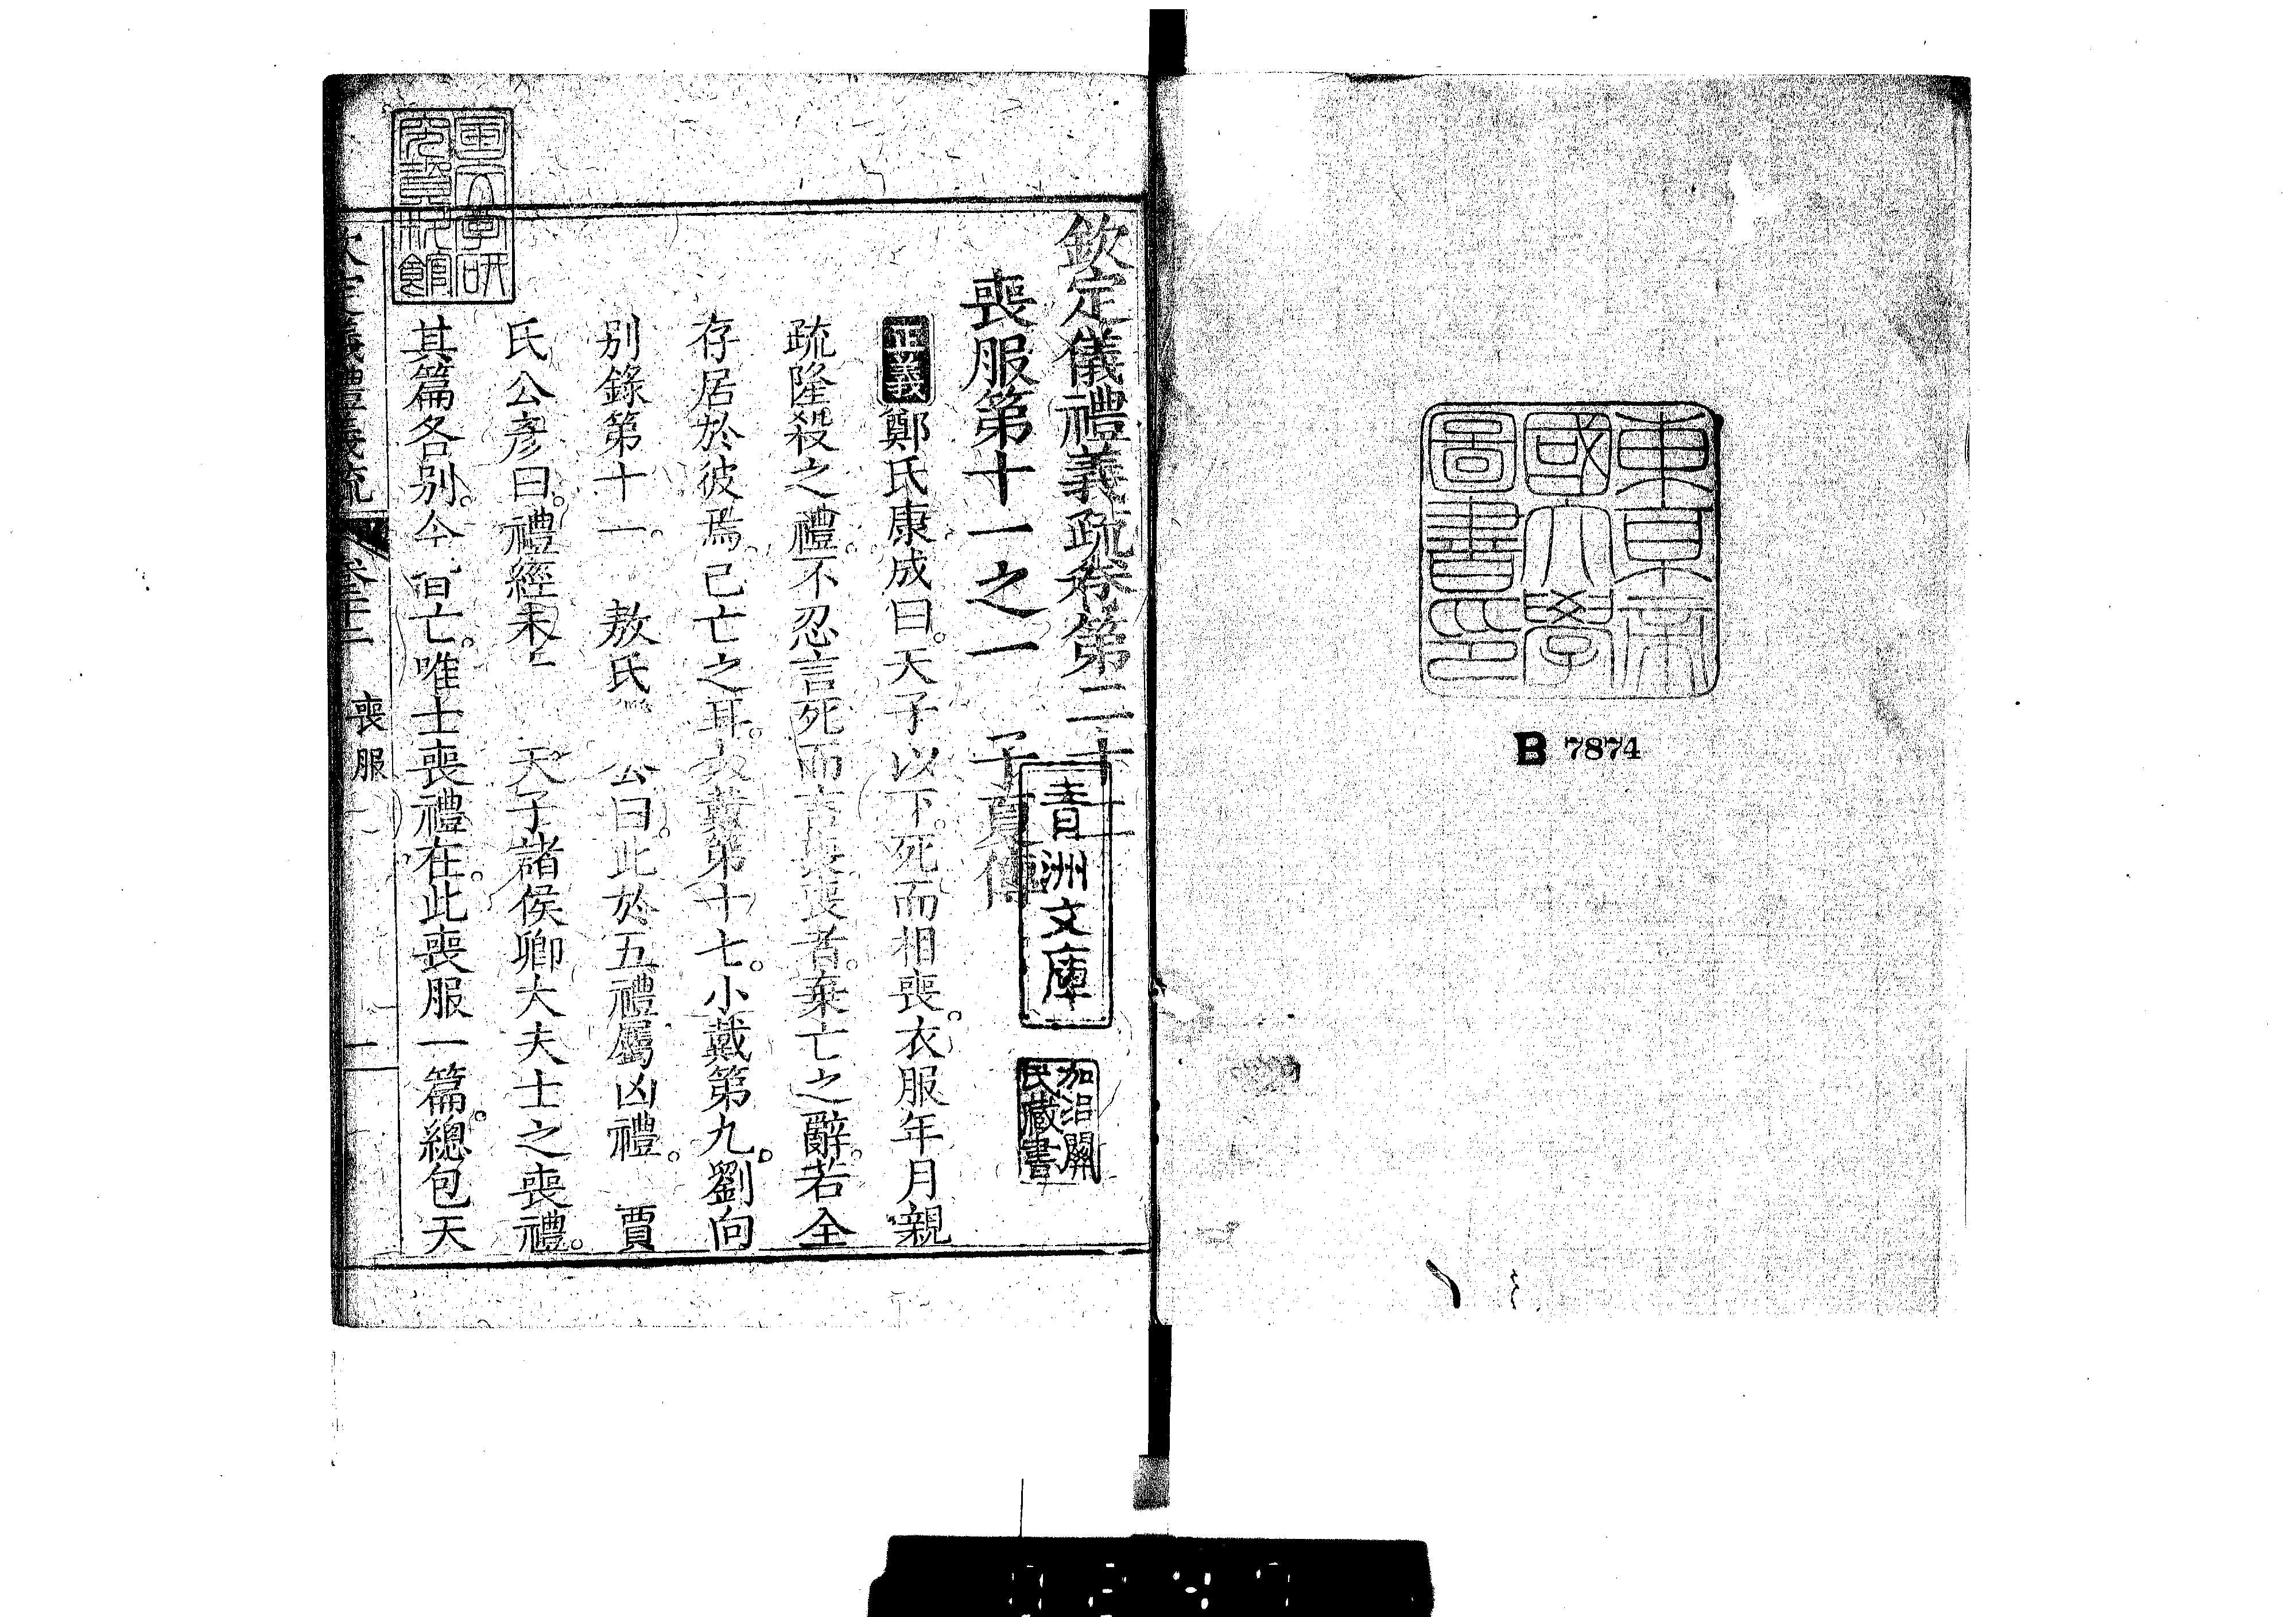 東京帝
國大學
圖書印
B 7874
欽定儀禮義疏卷第二十二
喪服第十一之一 子夏傳
青洲文庫
加沼關
氏藏書
正義鄭氏康成曰天子以下死而相喪衣服年月親
疏隆殺之禮不忍言死而言喪喪者棄亡之辭若全
存居於彼焉已亡之耳大戴第十七小戴第九劉向
別錄第十一 敖氏 公曰此於五禮屬凶禮 賈
氏公彥曰禮經未 天子諸侯卿大夫士之喪禮
其篇各別今皆亡唯士喪禮在此喪服一篇總包天
欽定儀禮義疏 卷二十二 喪服 一